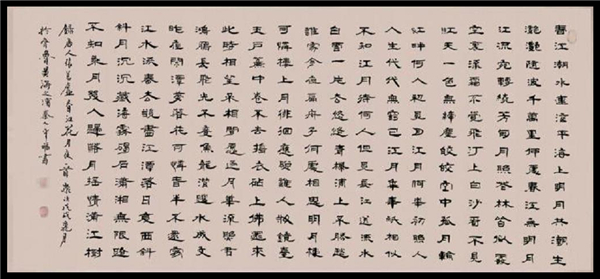 春江潮水連海平海上明月共潮生
灧灧隨波千萬里何處春江無明月
江流宛轉繞芳甸月照花林皆似霰
空裏流霜不覺飛汀上白沙看不見
江天一色無纖塵皎皎空中孤月輪
江畔何人初見月江月何年初照人
人生代代無窮已江月年年祇相似
不知江月待何人但見長江送流水
白雲一片去悠悠青楓浦上不勝愁
誰家今夜扁舟子何處相思明月樓
可憐樓上月徘徊應照離人妝鏡臺
玉戶簾中卷不去擣衣砧上拂還來
此時相望不相聞願逐月華流照君
鴻雁長飛光不度魚龍潛躍水成文
昨夜閒潭夢落花可憐春半不還家
江水流春去欲盡江潭落月復西斜
斜月沉沉藏海霧碣石瀟湘無限路
不知乘月幾人歸落月搖情滿江樹
錄唐人張若虛春江花月夜一首歲次戊戌月
於齊魯黃海之濱書